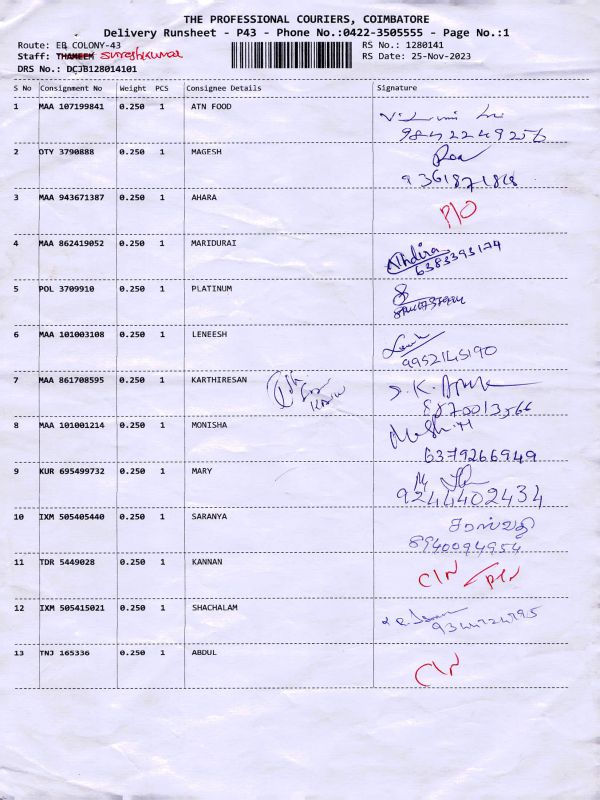 THE PROFESSIONAL COURIERS, COIMBATORE
Delivery Runsheet - P43 - Phone No.:0422-3505555 - Page No.:1
Route: EB COLONY-43 RS No.: 1280141
Staff: THAMEEM Sureshkumar RS Date: 25-Nov-2023
DRS No.: DCJB128014101
S No Consignment No Weight PCS Consignee Details Signature
1 MAA 107199841 0.250 1 ATN FOOD
9842249256
2 OTY 3790888 0.250 1 MAGESH
9361871818
3 MAA 943671387 0.250 1 AHARA P/O
4 MAA 862419052 0.250 1 MARIDURAI Athdira
6383393174
5 POL 3709910 0.250 1 PLATINUM
6 MAA 101003108 0.250 1 LENEESH
9952145190
7 MAA 861708595 0.250 1 KARTHIRESAN
8870013566
8 MAA 101001214 0.250 1 MONISHA
6379266949
9 KUR 695499732 0.250 1 MARY
9244402434
10 IXM 505405440 0.250 1 SARANYA சரஸ்வதி
8940094954
11 TDR 5449028 0.250 1 KANNAN C/N
12 IXM 505415021 0.250 1 SHACHALAM
9344724795
13 TNJ 165336 0.250 1 ABDUL C/N